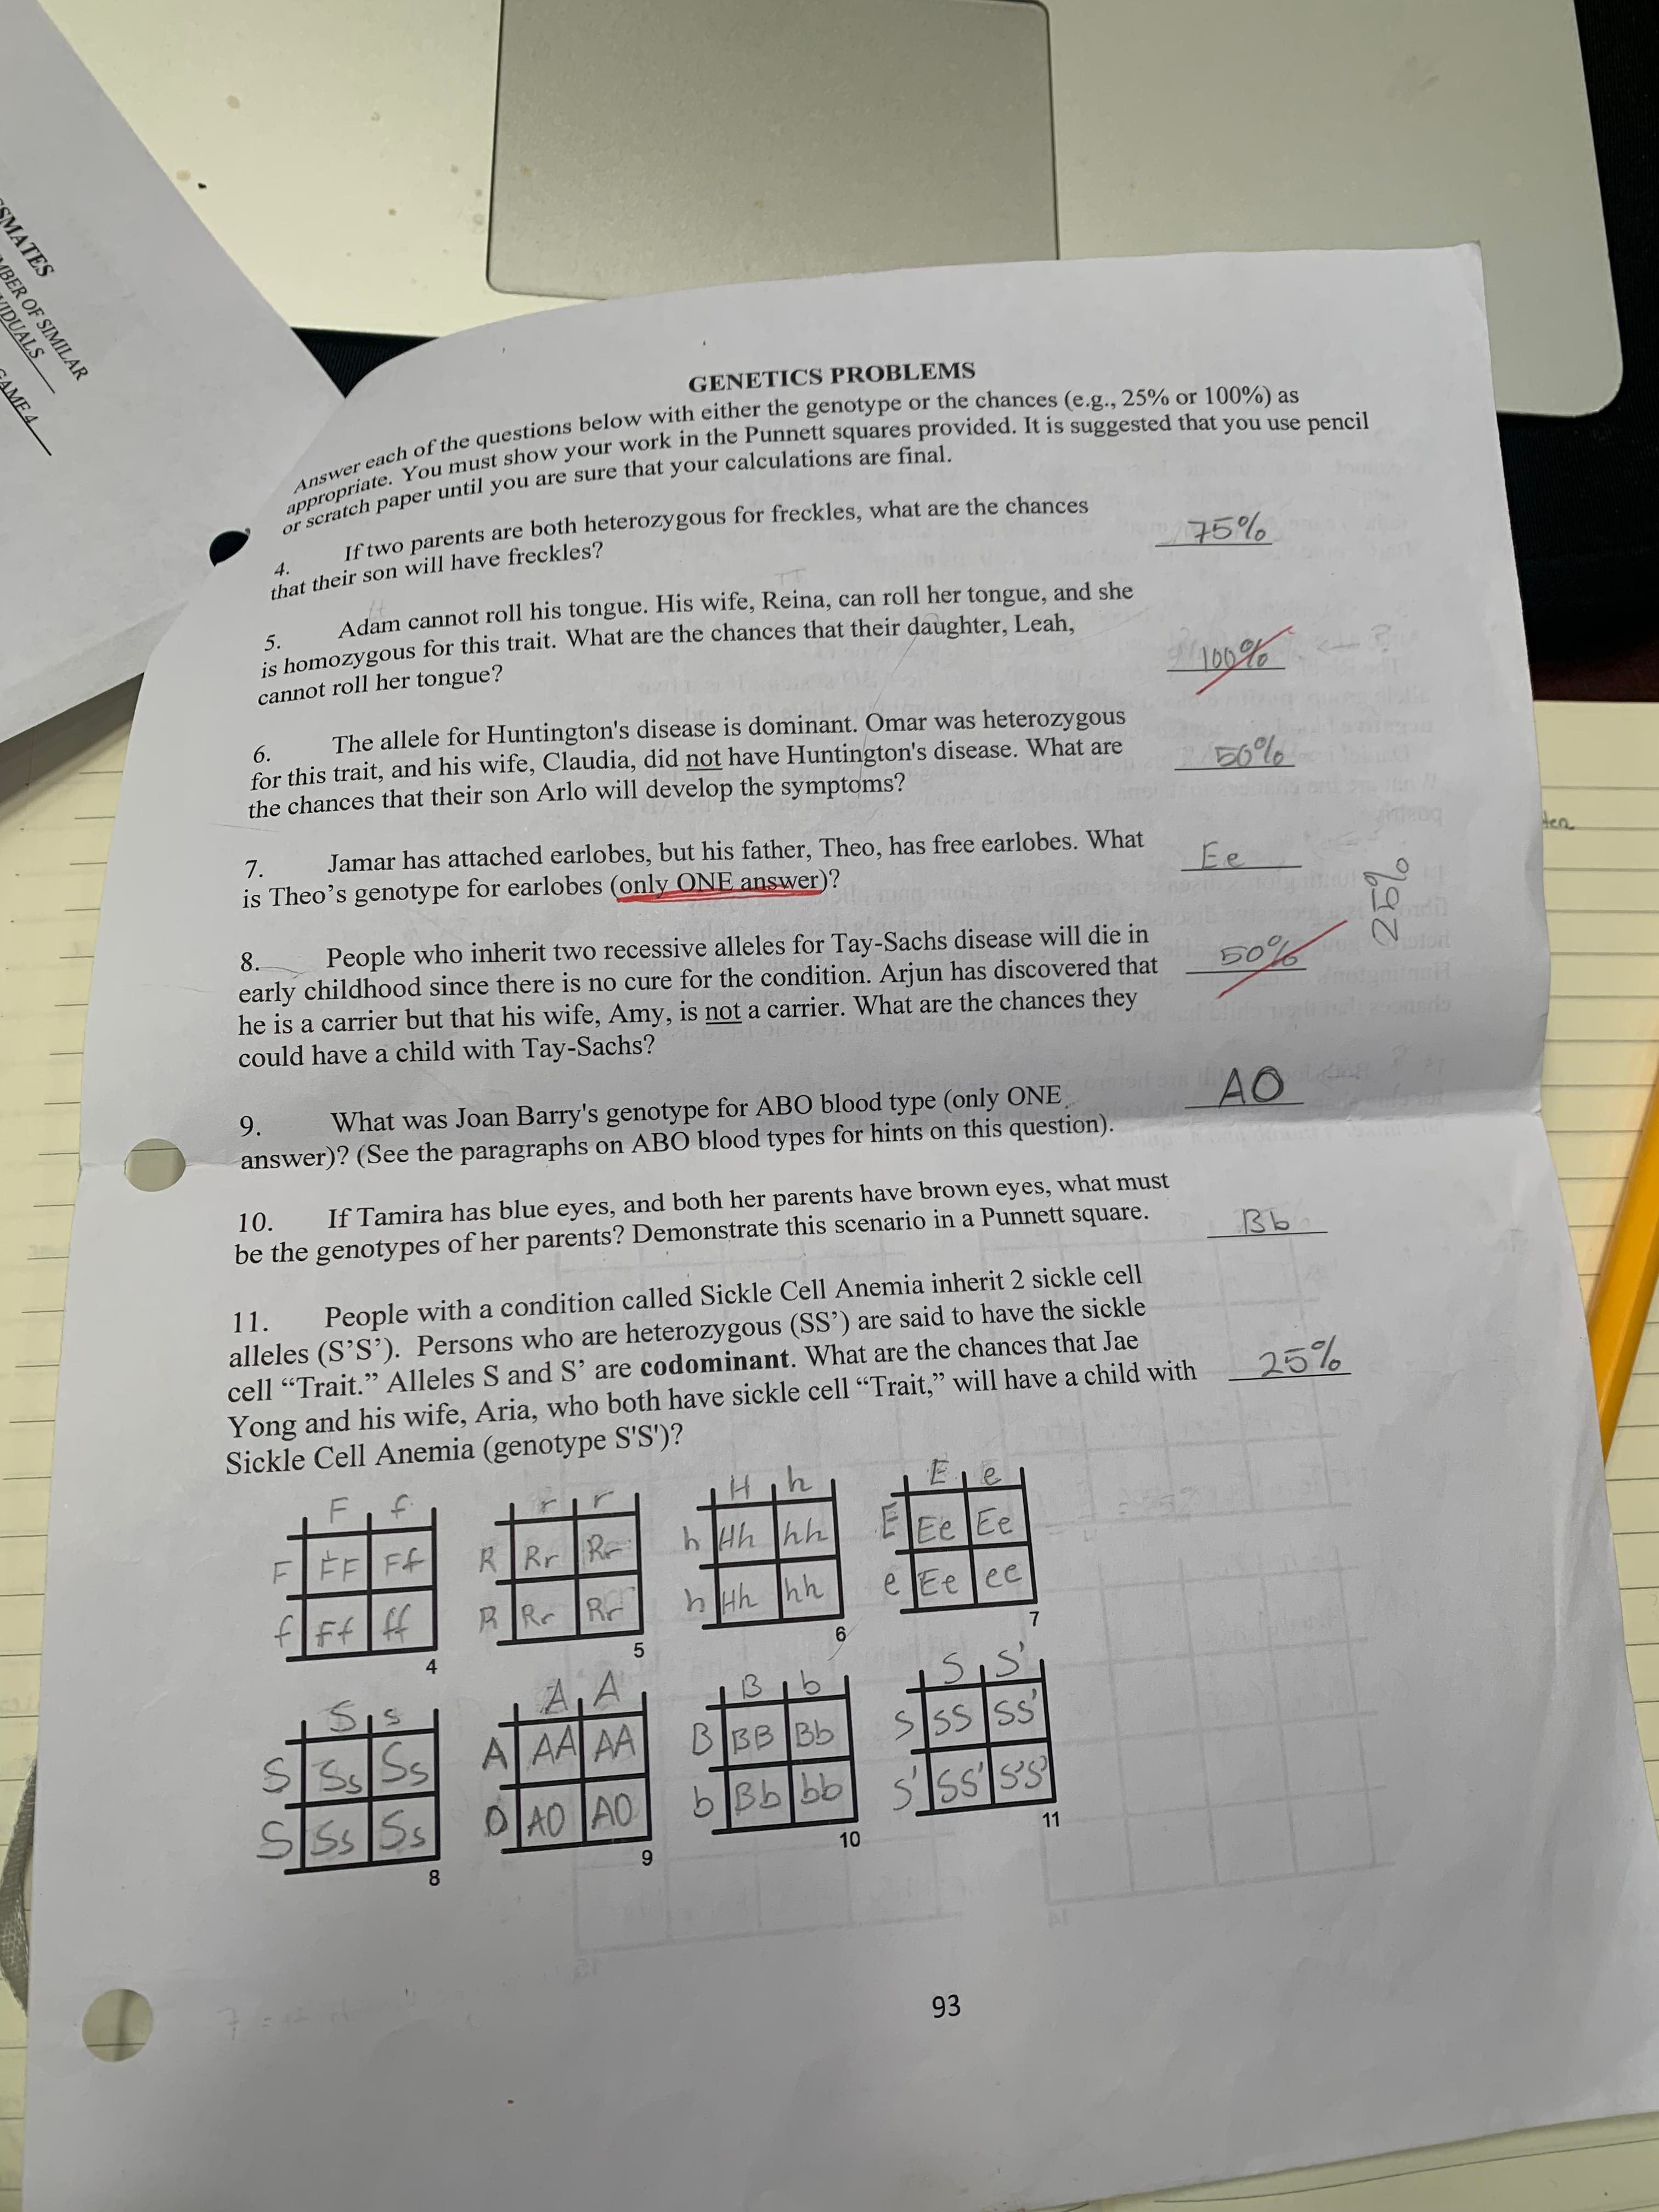 SMATES
MBER OF SIMILAR
VIDUALS
GAME 4
GENETICS PROBLEMS
Answer each of the questions below with either the genotype or the chances (e.g., 25% or 100%) as
appropriate. You must show your work in the Punnett squares provided. It is suggested that you use pencil
or scratch paper until you are sure that your calculations are final.
4. If two parents are both heterozygous for freckles, what are the chances
that their son will have freckles?
75%
5. Adam cannot roll his tongue. His wife, Reina, can roll her tongue, and she
is homozygous for this trait. What are the chances that their daughter, Leah,
cannot roll her tongue?
100%
6. The allele for Huntington's disease is dominant. Omar was heterozygous
for this trait, and his wife, Claudia, did not have Huntington's disease. What are
the chances that their son Arlo will develop the symptoms?
50%
7. Jamar has attached earlobes, but his father, Theo, has free earlobes. What
is Theo's genotype for earlobes (only ONE answer)?
Ee
8. People who inherit two recessive alleles for Tay-Sachs disease will die in
early childhood since there is no cure for the condition. Arjun has discovered that
he is a carrier but that his wife, Amy, is not a carrier. What are the chances they
could have a child with Tay-Sachs?
50%
25%
9. What was Joan Barry's genotype for ABO blood type (only ONE
answer)? (See the paragraphs on ABO blood types for hints on this question).
AO
10. If Tamira has blue eyes, and both her parents have brown eyes, what must
be the genotypes of her parents? Demonstrate this scenario in a Punnett square.
Bb
11. People with a condition called Sickle Cell Anemia inherit 2 sickle cell
alleles (S'S'). Persons who are heterozygous (SS') are said to have the sickle
cell "Trait." Alleles S and S' are codominant. What are the chances that Jae
Yong and his wife, Aria, who both have sickle cell "Trait," will have a child with
Sickle Cell Anemia (genotype S'S')?
25%
F f
F FF Ff
f Ff ff
4
r r
R Rr Rr
R Rr Rr
5
H h
h Hh hh
h Hh hh
6
E e
E Ee Ee
e Ee ee
7
S s
S Ss Ss
S Ss Ss
8
A A
A AA AA
O AO AO
9
B b
B BB Bb
b Bb bb
10
S S'
S SS SS'
S' SS' S'S'
11
93